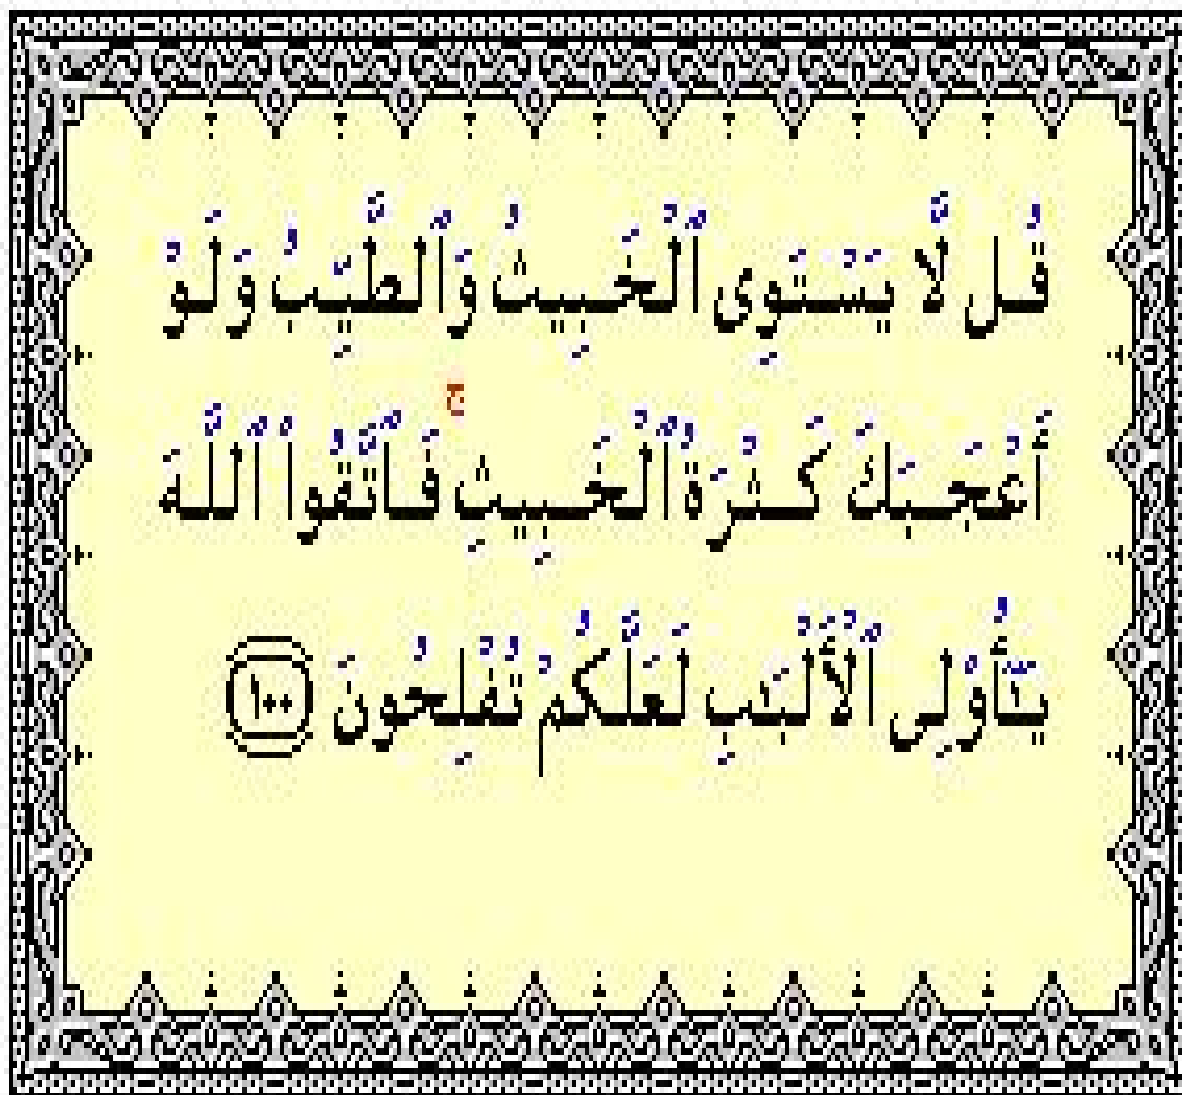 قُل لَّا يَسْتَوِى ٱلْخَبِيثُ وَٱلطَّيِّبُ وَلَوْ
أَعْجَبَكَ كَثْرَةُ ٱلْخَبِيثِ ۚ فَٱتَّقُوا۟ ٱللَّهَ
يَـٰٓأُو۟لِى ٱلْأَلْبَـٰبِ لَعَلَّكُمْ تُفْلِحُونَ ١٠٠